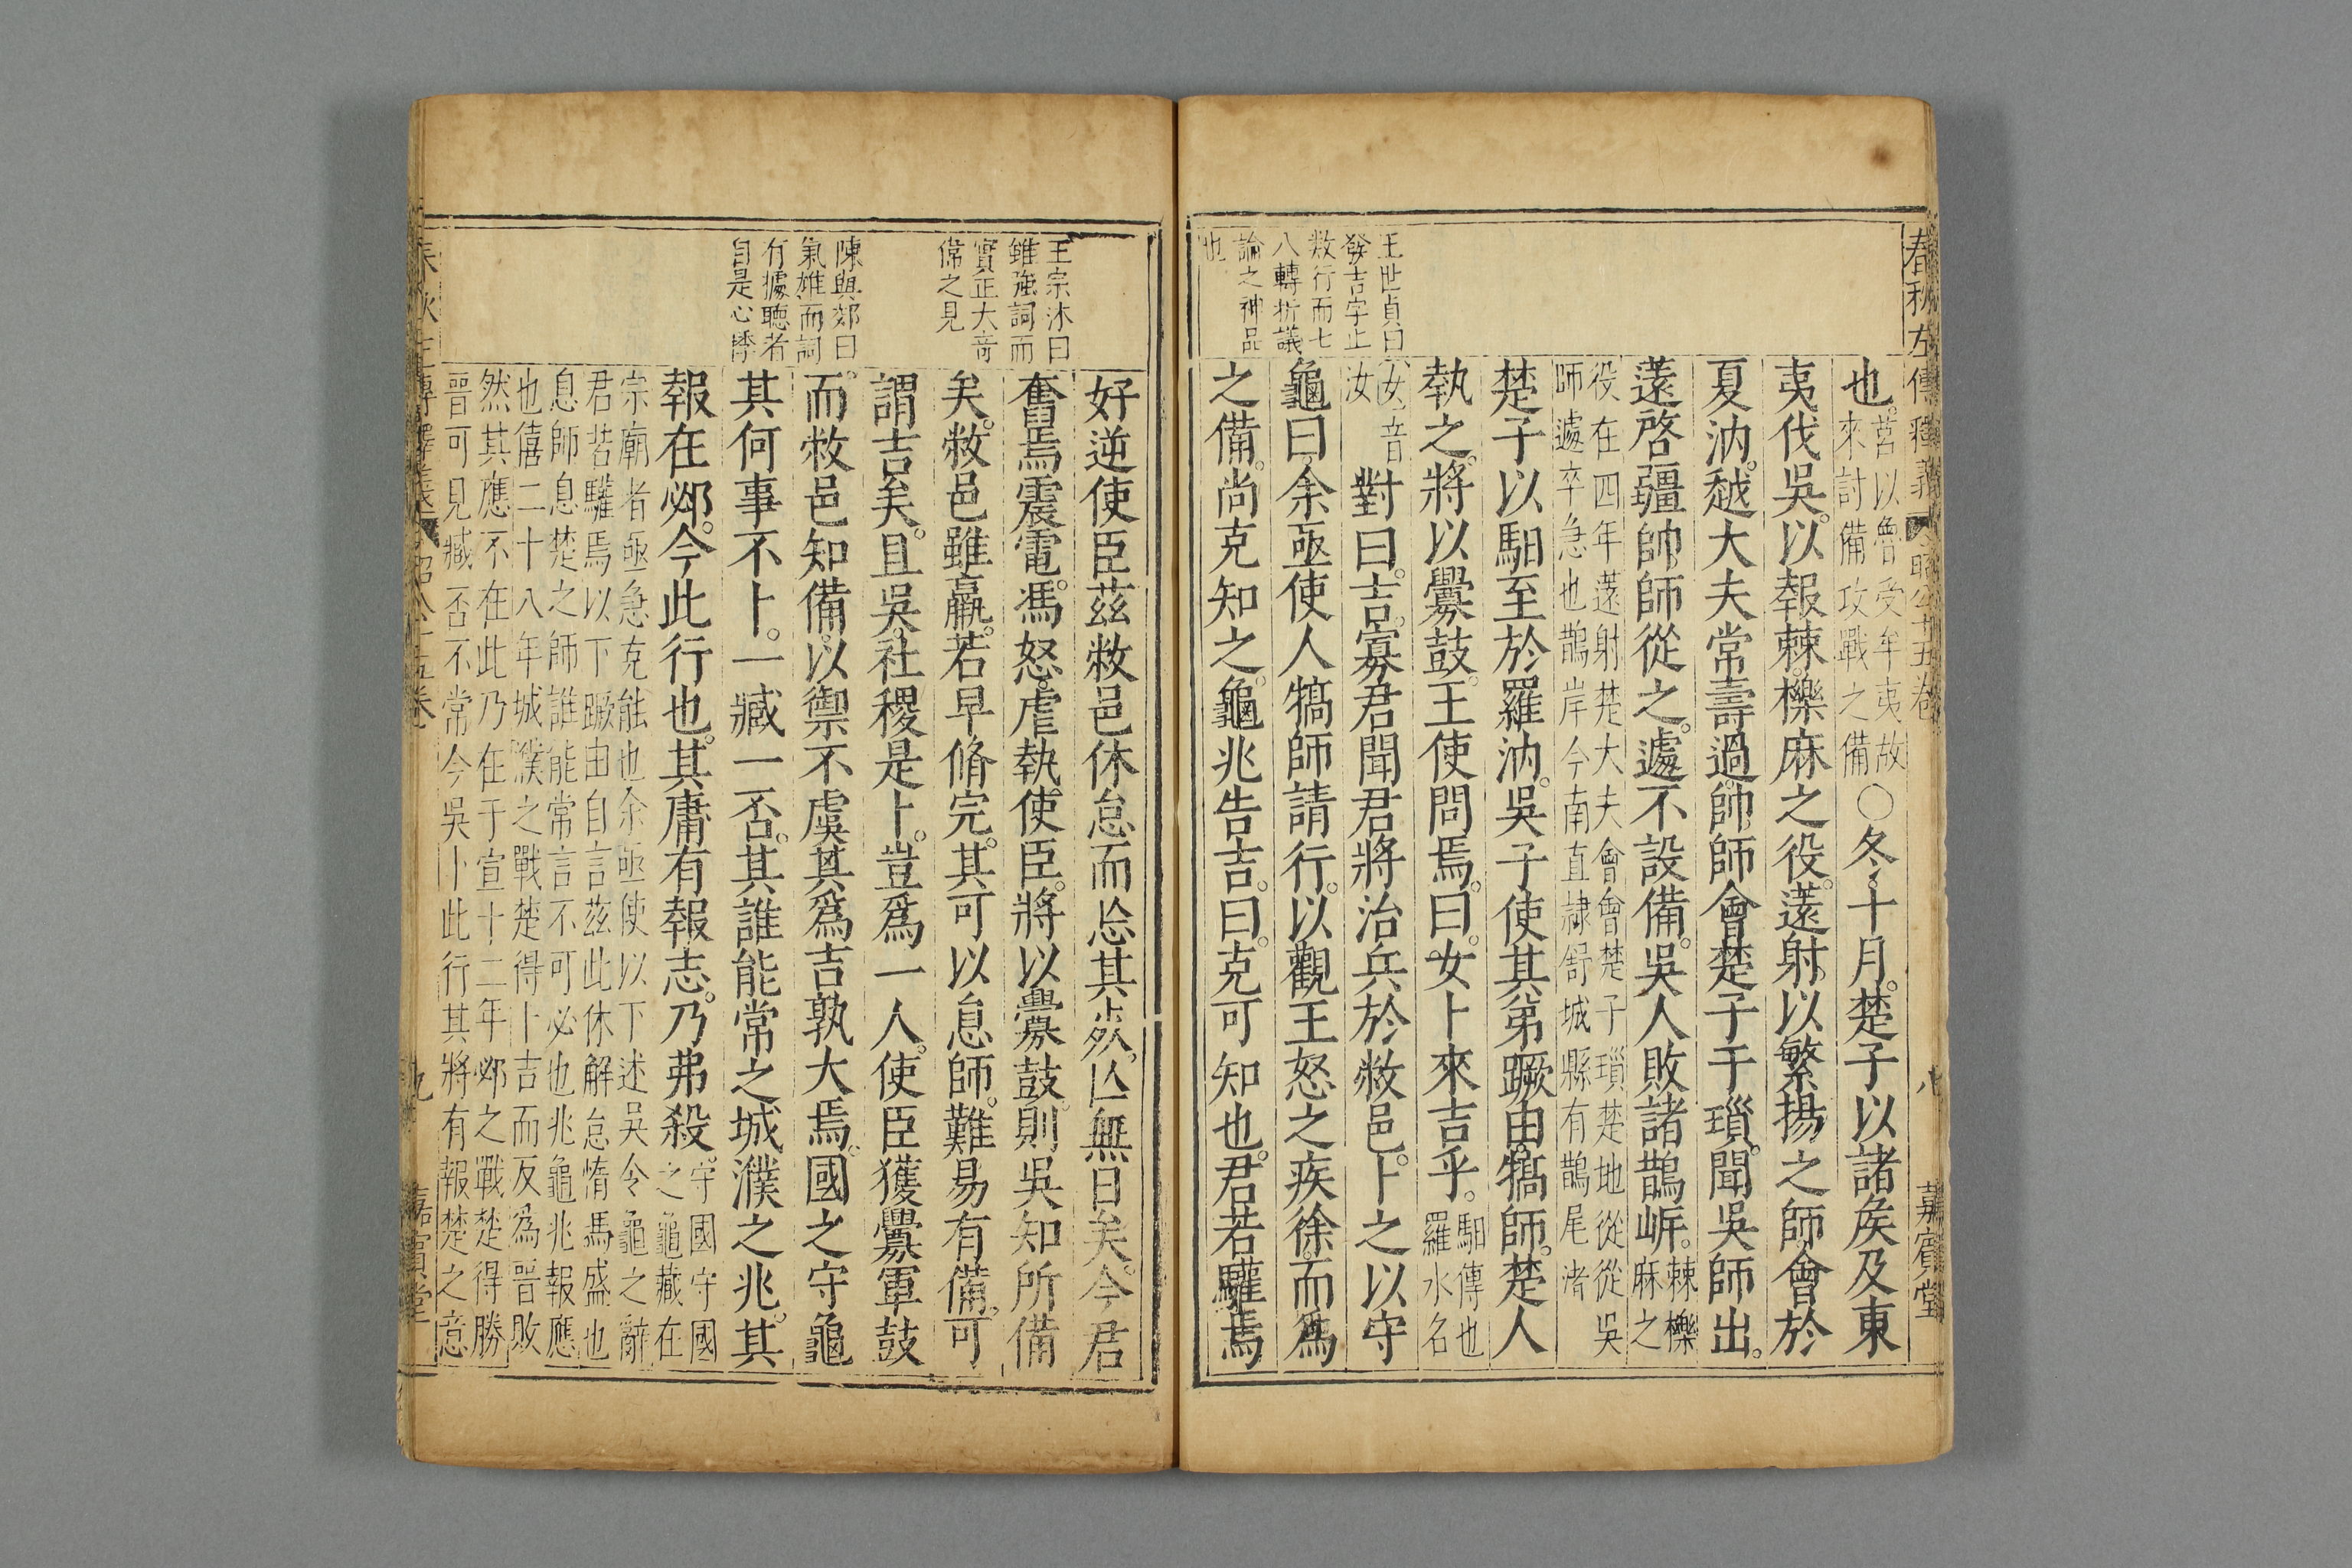 春秋左傳釋義 昭公十五卷 八 嘉賓堂
王世貞曰
發吉字止
數行而七
八轉折議
論之神品
也
也莒以魯受牟夷故
來討備攻戰之備〇冬十月楚子以諸矦及東
夷伐吳以報棘櫟麻之役薳射以繁揚之師會於
夏汭越大夫常壽過帥師會楚子于瑣聞吳師出
薳啓疆帥師從之遽不設備吳人敗諸鵲岸棘櫟
麻之
役在四年薳射楚大夫會會楚子瑣楚地從從吳
師遽卒急也鵲岸今南直隷舒城縣有鵲尾渚
楚子以馹至於羅汭吳子使其弟蹶由犒師楚人
執之將以釁鼓王使問焉曰女卜來吉乎馹傳也
羅水名
女音
汝對曰吉寡君聞君將治兵於敝邑卜之以守
龜曰余亟使人犒師請行以觀王怒之疾徐而爲
之備尚克知之龜兆告吉曰克可知也君若驩焉
王宗沐曰
雖強詞而
實正大竒
偉之見
陳與郊曰
氣雄而詞
有據聽者
自是心醉
好逆使臣茲敝邑休怠而忘其死亾無日矣今君
奮焉震電馮怒虐執使臣將以釁鼓則吳知所備
矣敝邑雖羸若早脩完其可以息師難易有備可
謂吉矣且吳社稷是卜豈爲一人使臣獲釁軍鼓
而敝邑知備以禦不虞其爲吉孰大焉國之守龜
其何事不卜一臧一否其誰能常之城濮之兆其
報在邲今此行也其庸有報志乃弗殺守國守國
之龜藏在
宗廟者亟急克能也余亟使以下述吳令龜之辭
君若驩焉以下蹶由自言茲此休解怠惰馮盛也
息師息楚之師誰能常言不可必也兆龜兆報應
也僖二十八年城濮之戰楚得卜吉而反爲晋敗
然其應不在此乃在于宣十二年邲之戰楚得勝
晋可見臧否不常今吳卜此行其將有報楚之意
春秋左傳釋義 昭公十五卷 九 嘉賓堂